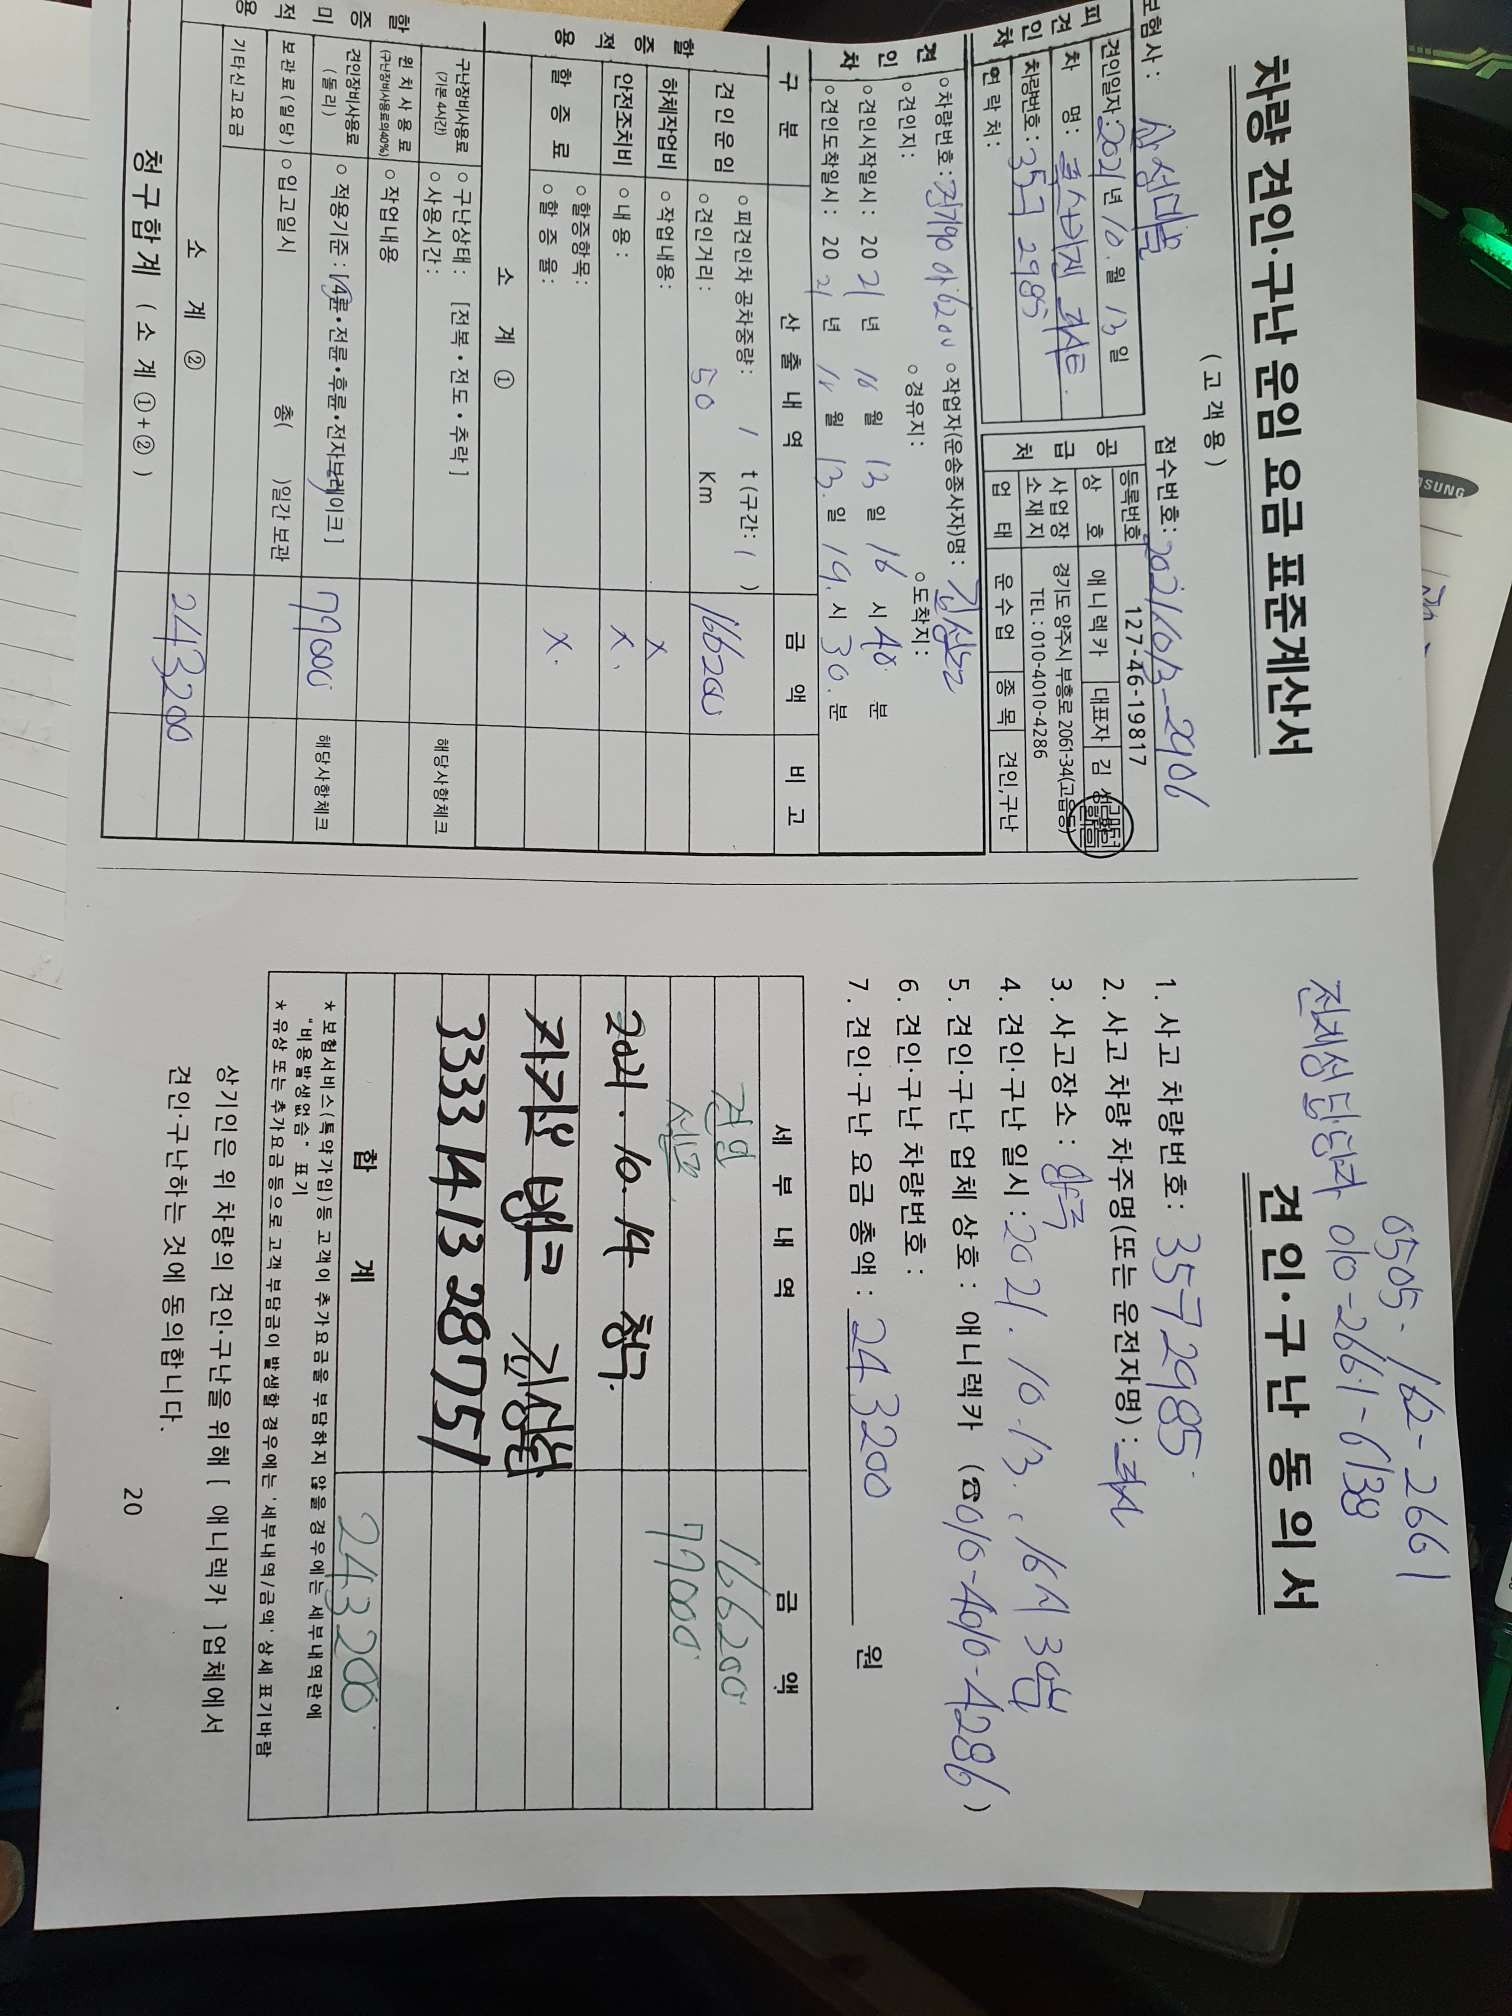 차량 견인·구난 운임 요금 표준계산서
( 고 객 용 )
보험사 :
접수번호 : 20211013-2906
피견인차
견인일자 : 2021 년 10. 월 13 일
차 명 :
차량번호 : 2985
연 락 처 :
공급처
등록번호 127-46-19817
상 호 애니렉카 대표자 김
사업장 소재지 경기도 양주시 부흥로 2061-34(고읍동)
TEL : 010-4010-4286
업 태 운수업 종 목 견인,구난
견인차
○차량번호 : ○작업자(운송종사자)명 :
○견인지 : ○경유지 : ○도착지 :
○견인시작일시 : 20 21 년 10 월 13 일 16 시 40 분
○견인도착일시 : 20 21 년 10 월 13. 일 19. 시 30. 분
구 분 산 출 내 역 금 액 비 고
할증적용
견인운임 ○피견인차 공차중량 : 1 t (구간 : ( )
○견인거리 : 50 Km 166200
하체작업비 ○작업내용 : X
안전조치비 ○내용 : X.
할 증 료 ○할증항목: X.
○할 증 율 :
소 계 ①
할증미적용
구난장비사용료 (기본4시간) ○구난상태 : [전복 • 전도 • 추락 ] 해당사항체크
○사용시간 :
윈치사용료 (구난장비사용료의40%) ○작업내용
견인장비사용료 ( 돌리 ) ○ 적용기준 : [4륜 • 전륜 • 후륜 • 전자브레이크 ] 77000 해당사항체크
보관료(일당) ○입고일시 총( )일간 보관
기타신고요금
소 계 ②
청구합계 ( 소 계 ① + ② ) 243200
0505-162-2661
010-2661-6138
견인·구난 동의서
1. 사고 차량번호 : 35구 2985
2. 사고 차량 차주명(또는 운전자명) :
3. 사고장소 : 양주
4. 견인·구난 일시 : 2021. 10. 13. 16시 30분
5. 견인·구난 업체 상호 : 애니렉카 (☎010-4010-4286)
6. 견인·구난 차량번호 :
7. 견인·구난 요금 총액 : 243200 원
세 부 내 역 금 액
견인 166200
77000
2021. 10. 14 청구.
3333 14 13 28751
합 계 243200
* 보험서비스(특약가입)등 고객이 추가요금을 부담하지 않을 경우에는 세부내역란에
"비용발생없음" 표기
* 유상 또는 추가요금 등으로 고객 부담금이 발생할 경우에는 '세부내역/금액' 상세 표기바람
상기인은 위 차량의 견인·구난을 위해 [ 애니렉카 ]업체에서
견인·구난하는 것에 동의합니다.
20